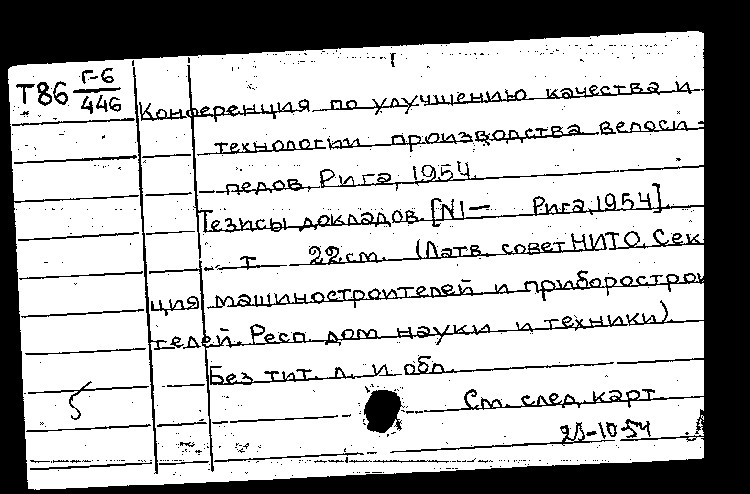 Т86 Г-6
446
Конференция по улучшению качества и
технологии производства велоси-
педов, Рига, 1954.
Тезисы докладов. [N1— Рига, 1954].
т 22см. (Латв. совет НИТО. Сек
ция машиностроителей и приборострои
телей. Респ. дом науки и техники).
Без тит. л. и обл.
5
См. след. карт.
-10-54